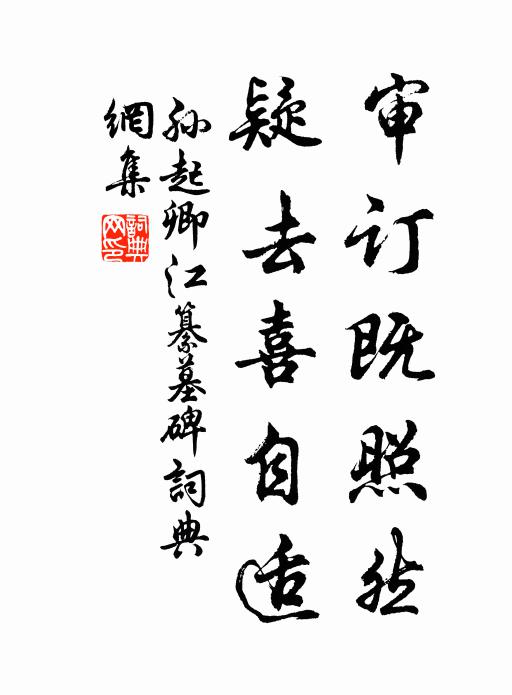 审订既照然
疑去喜自适
孙起卿江纂墓碑詞典
網集
詞典
网印